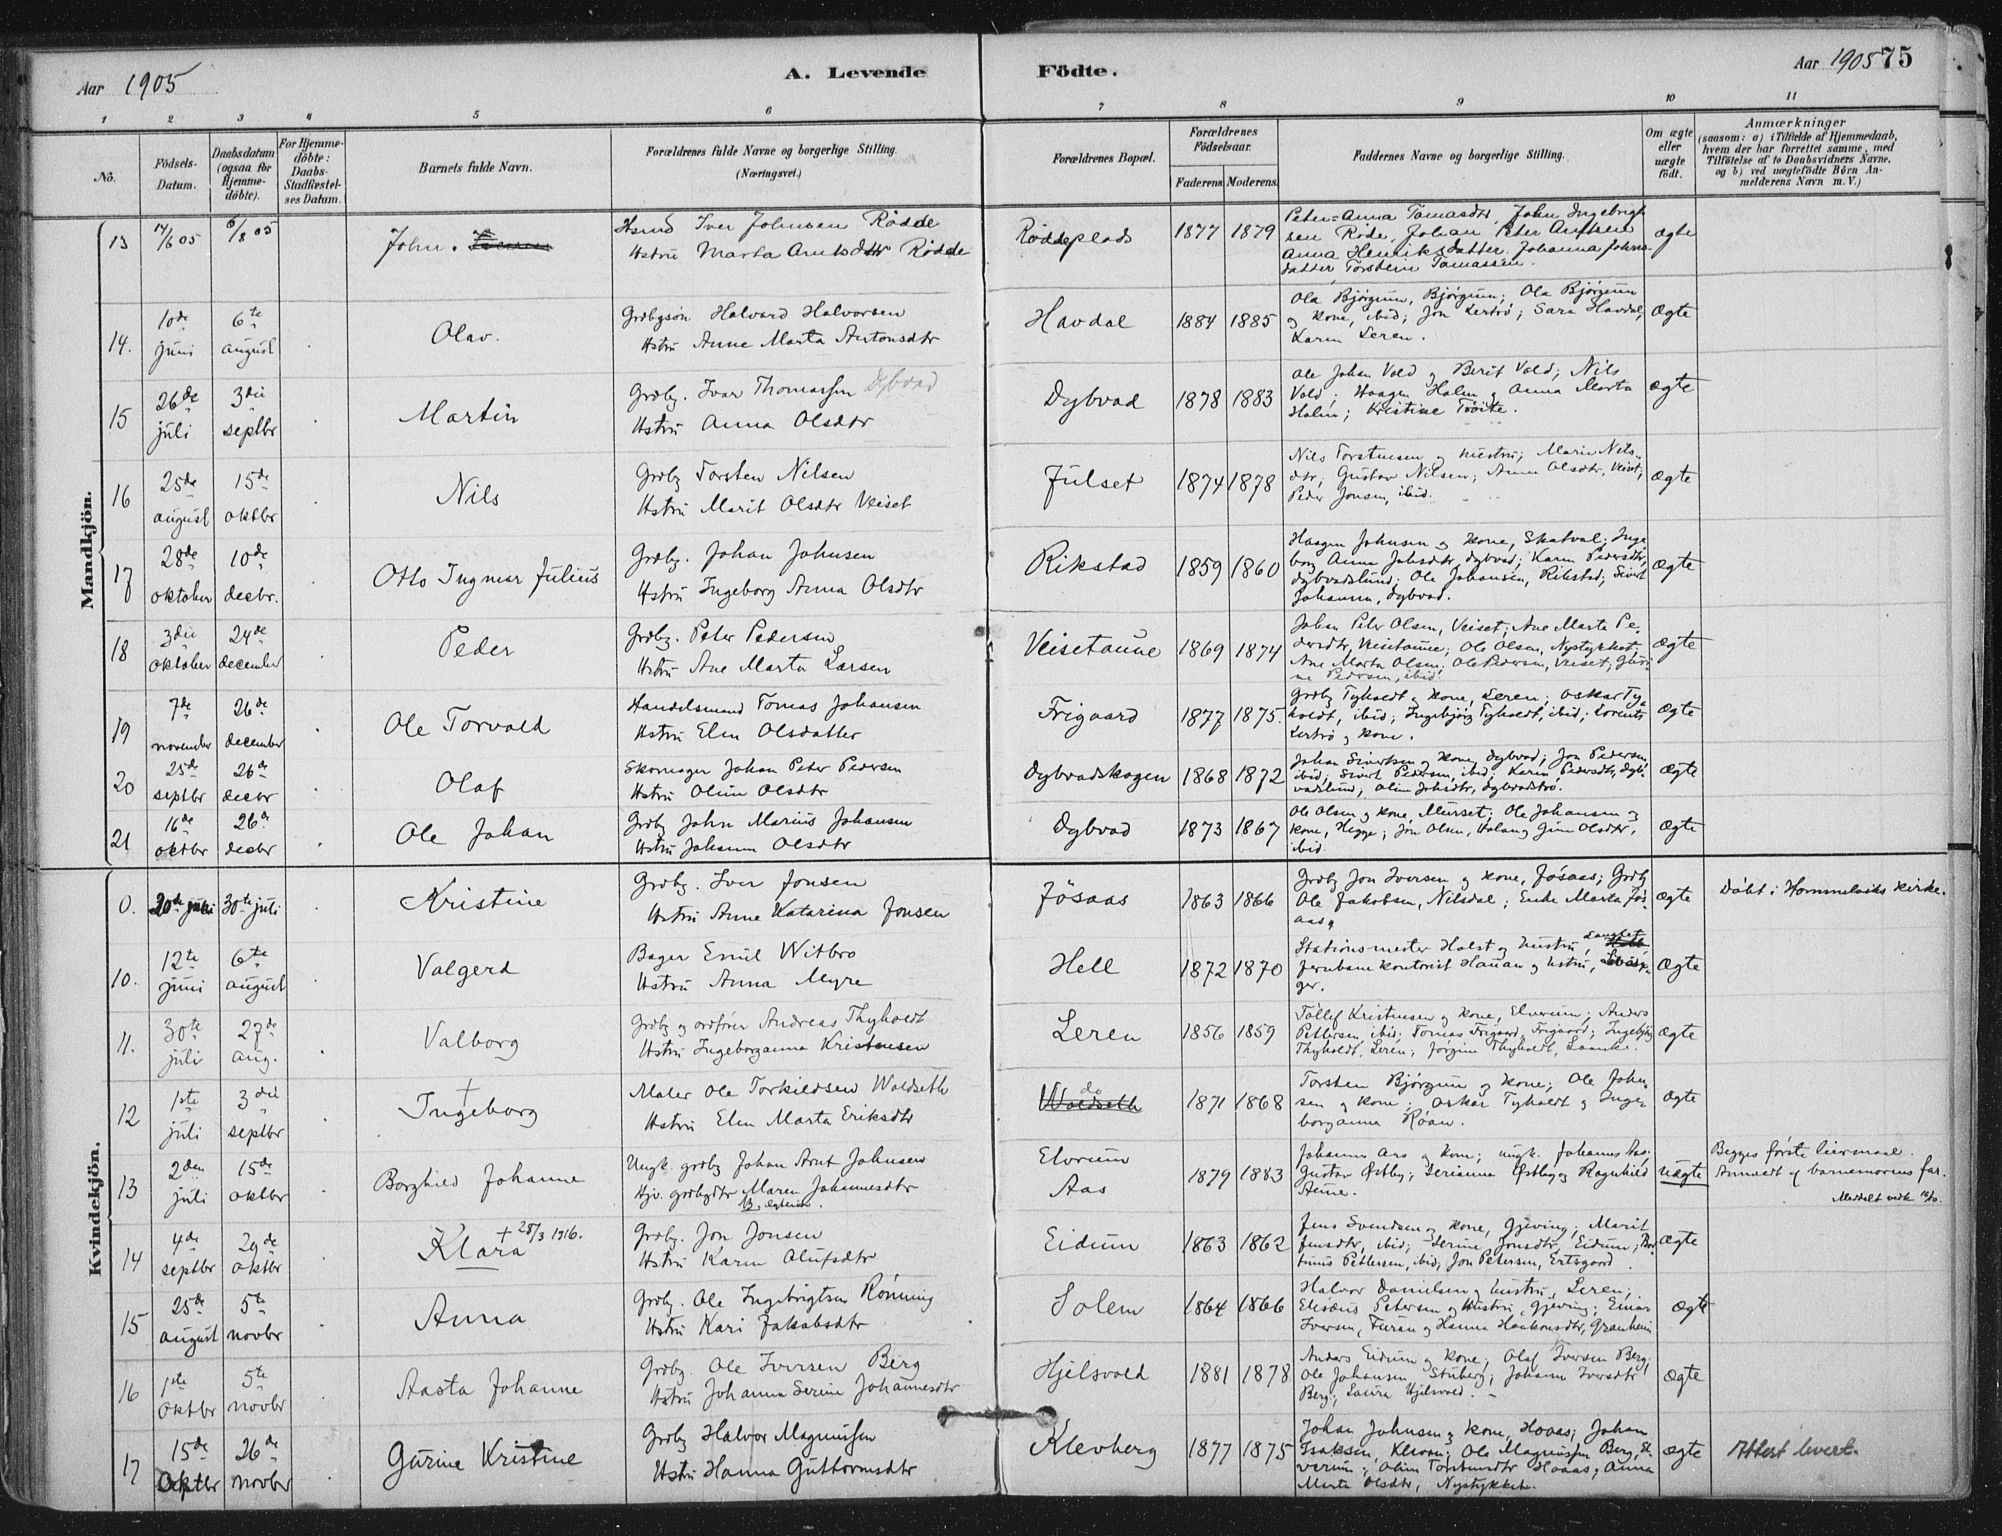 Aar 1905
A. Levende
Födte.
Aar 1905 75
1 2 3 4 5 6 7 8 9 10 11
Nö.
Födsels-Datum.
Daabsdatum (ogsaa för Hjemme-döbte).
For Hjemme-döbte: Daabs-Stadfæstel-ses Datum.
Barnets fulde Navn.
Forældrenes fulde Navne og borgerlige Stilling.
(Næringsvei.)
Forældrenes Bopæl.
Forældrenes Födselsaar.
Faderens. Moderens.
Faddernes Navne og borgerlige Stilling.
Om ægte eller uægte födt.
Anmærkninger
(saasom: a) i Tilfælde af Hjemmedaab, hvem der har forrettet samme, med Tilföielse af to Daabsvidners Navne, og b) ved uægtefödte Börn An-melderens Navn m. V.)
Mandkjön.
13 14/6 05 6/8 05 John. Iversen
Iver Johnsen Rödde
Hstru Marta Arntsdtr Rödde
Röddeplads 1877 1879
Peter Anna Tomasdtr, John Ingebrigt
sen Röde, Johan Peter
Anna Henriksdatter. Johanna Johns
datter Torstein Tomassen.
ægte
14. 10de juni 6te august Olav.
Grdbgsön Halvard Halvorsen
Hstru Anne Marta Antonsdtr
Havdal 1884 1885
Ola Bjørgum, Bjørgum; Ola Bjørgum
og kone, ibid; Jon Lertrö; Sara Havdal,
Karen Leren.
Ægte
15 26de juli 3die septbr Martin
Grdbg. Ivar Thomassen Dybvad
Hstru Anna Olsdtr
Dybvad 1878 1883
Ole Johan Vold og Berit Vold; Nils
Vold; Haagen Holm og Anna Marta
Holm; Kristine
Ægte
16 25de august 15de oktbr Nils
Grdbg Torsten Nilsen
Hstru Marit Olsdtr Veiset
Julset 1874 1878
Nils Torstensen og hustru; Marie Nils-
dtr; Gustav Nilsen; Anna Olsdtr, Veiset,
Peder Jonsen, ibid.
Ægte
17 28de oktober 10de decbr. Otto Ingmar Julius
Grdbg. Johan Johnsen
Hstru Ingeborg Anna Olsdtr
Rikstad 1859 1860
Haagen Johnsen og kone, Skatval; Inge
borg Anna Johsdtr, Dybvad; Karen Pedersdtr,
Dybvadslund; Ole Johansen, Rikstad; Sivert
Johannsen, Dybvad.
Ægte
18 3die oktober 24de december Peder
Grdbg. Peter Pedersen
Hstru Ane Marta Larsen
Veisetaune 1869 1874
Johan Peter Olsen, Veiset; Ane Marta Pe-
dersdtr, Veisetaune; Ole Olsen, Nystykket;
Ane Marta Olsen; Ole Pedersen, Veiset; Guri-
ne Pedersen, ibid.
Ægte
19 7de november 26de december Ole Torvald
Handelsmand Tomas Johansen
Hstru Elen Olsdatter
Frigaard 1877 1875.
Grdbg Tyholdt og kone, Leren; Oskar Ty-
holdt, ibid; Ingebjörg Tyholdt, ibid; Lorents
Lertrö og kone.
Ægte
20 25de septbr 26de decbr Olaf
Skomager Johan Peter Pedersen
Hstru Oline Olsdtr
Dybvadskogen 1868 1872
Johan Sivertsen og kone, Dybvad; Jon Pedersen,
ibid; Sivert Pedersen, ibid; Karen Pedersdtr, Dyb-
vadslund; Oline Johsdtr, Dybvadströ.
Ægte
21 16de oktbr 26de decbr Ole Johan
Grdbg John Marius Johansen
Hstru Johanna Olsdtr
Dybvad 1873 1867
Ole Olsen og kone, Meirset; Ole Johansen og
kone, Hegge; Jon Olsen, Holan og Olsdtr,
ibid.
Ægte
Kvindekjön.
0. 20de juli 30te juli Kristine
Grdbg. Iver Jonsen
Hstru Anne Katarina Jonsen
Jösaas 1863 1866
Grdbg Jon Iversen og kone, Jösaas; Grdbg
Ole Jakobsen, Nilsdal; Enke Marta Jös-
aas
Ægte
Döbt i Hommelviks kirke.
10. 12te juni 6te august Valgerd
Bager Emil Witbro
Hstru Anna Myre
Hell 1872 1870
Stationsmester Holst og hustru,
Jernbanekontorist Hauan og hstru,
ger.
Ægte
11. 30te juli 27de aug. Valborg
Grdbg og ordförer Andreas Thyholdt
Hstru Ingeborganna Kristensen
Leren 1856 1859
Tollef Kristensen og kone, Elvrum; Anders
Pettersen, ibid; Tomas Frigaard, Frigaard; Ingebjörg
Thyholdt, Leren; Jörgine Thyholdt, Laanke.
Ægte
12 1ste juli 3die septbr + Ingeborg
Maler Ole Torkildsen Woldseth
Hstru Elen Marta Eriksdtr
Woldseth do 1871 1868
Torsten Bjørgum og kone; Ole John-
sen og kone; Oskar Tyholdt og Inge-
borganna Röan.
Ægte
13 2den juli 15de oktbr Borghild Johanne
Ungk. grdbg Johan Arnt Johnsen
Pige grdbgdtr Maren Johannesdtr
Elvrum
Aas
1879 1883
Johannes Aas og kone; ungk. Johannes Aas;
Gustav Østby; Serianna Østby og Ragnhild
Aune.
uægte
Begges første leiermaal.
Anmeldt af barnemorens far.
Meddelt vedk. 16/10.
14 4de septbr 29de oktbr Klara + 28/3 1916.
Grdbg. Jon Jonsen
Hstru Karen Olufsdtr
Eidum 1863 1862
Jens Svendsen og kone, Gjeving; Marit
Jensdtr, ibid; Serine Jonsdtr, Eidum;
Pettersen, ibid; Jon Petersen, Ertsgaard.
Ægte
15 25de august 5te novbr Anna
Grdbg. Ole Ingebrigtsen Rönning
Hstru Kari Jakobsdtr
Solem 1864 1866
Halvor Danielsen og hustru, Leren;
Elisæus Petersen og Hustru, Gjeving; Einar
Iversen, Turan og Hanna Haakonsdtr, Granheim
Ægte
16 1ste oktbr 5te novbr Aasta Johanne
Grdbg. Ole Iversen Berg
Hstru Johanna Serine Johannesdtr
Hjelsvold 1881 1878
Anders Eidum og kone; Olaf Iversen Berg;
Ole Johansen Stuberg; Johanna Iversdtr
Berg; Laura Hjelsvold.
Ægte
17 15de oktbr 26de novbr Gurine Kristine
Grdbg Halvor Magnussen
Hstru Hanna Guttormsdtr
Klevberg 1877 1875
Johan Johnsen og kone, Hoaas; Johan
Isaksen, Ole Magnussen Berg, El-
verum; Oline Torstensdtr Hoaas; Anna
Marta Olsdtr, Nystykket.
ægte
Attest levert.